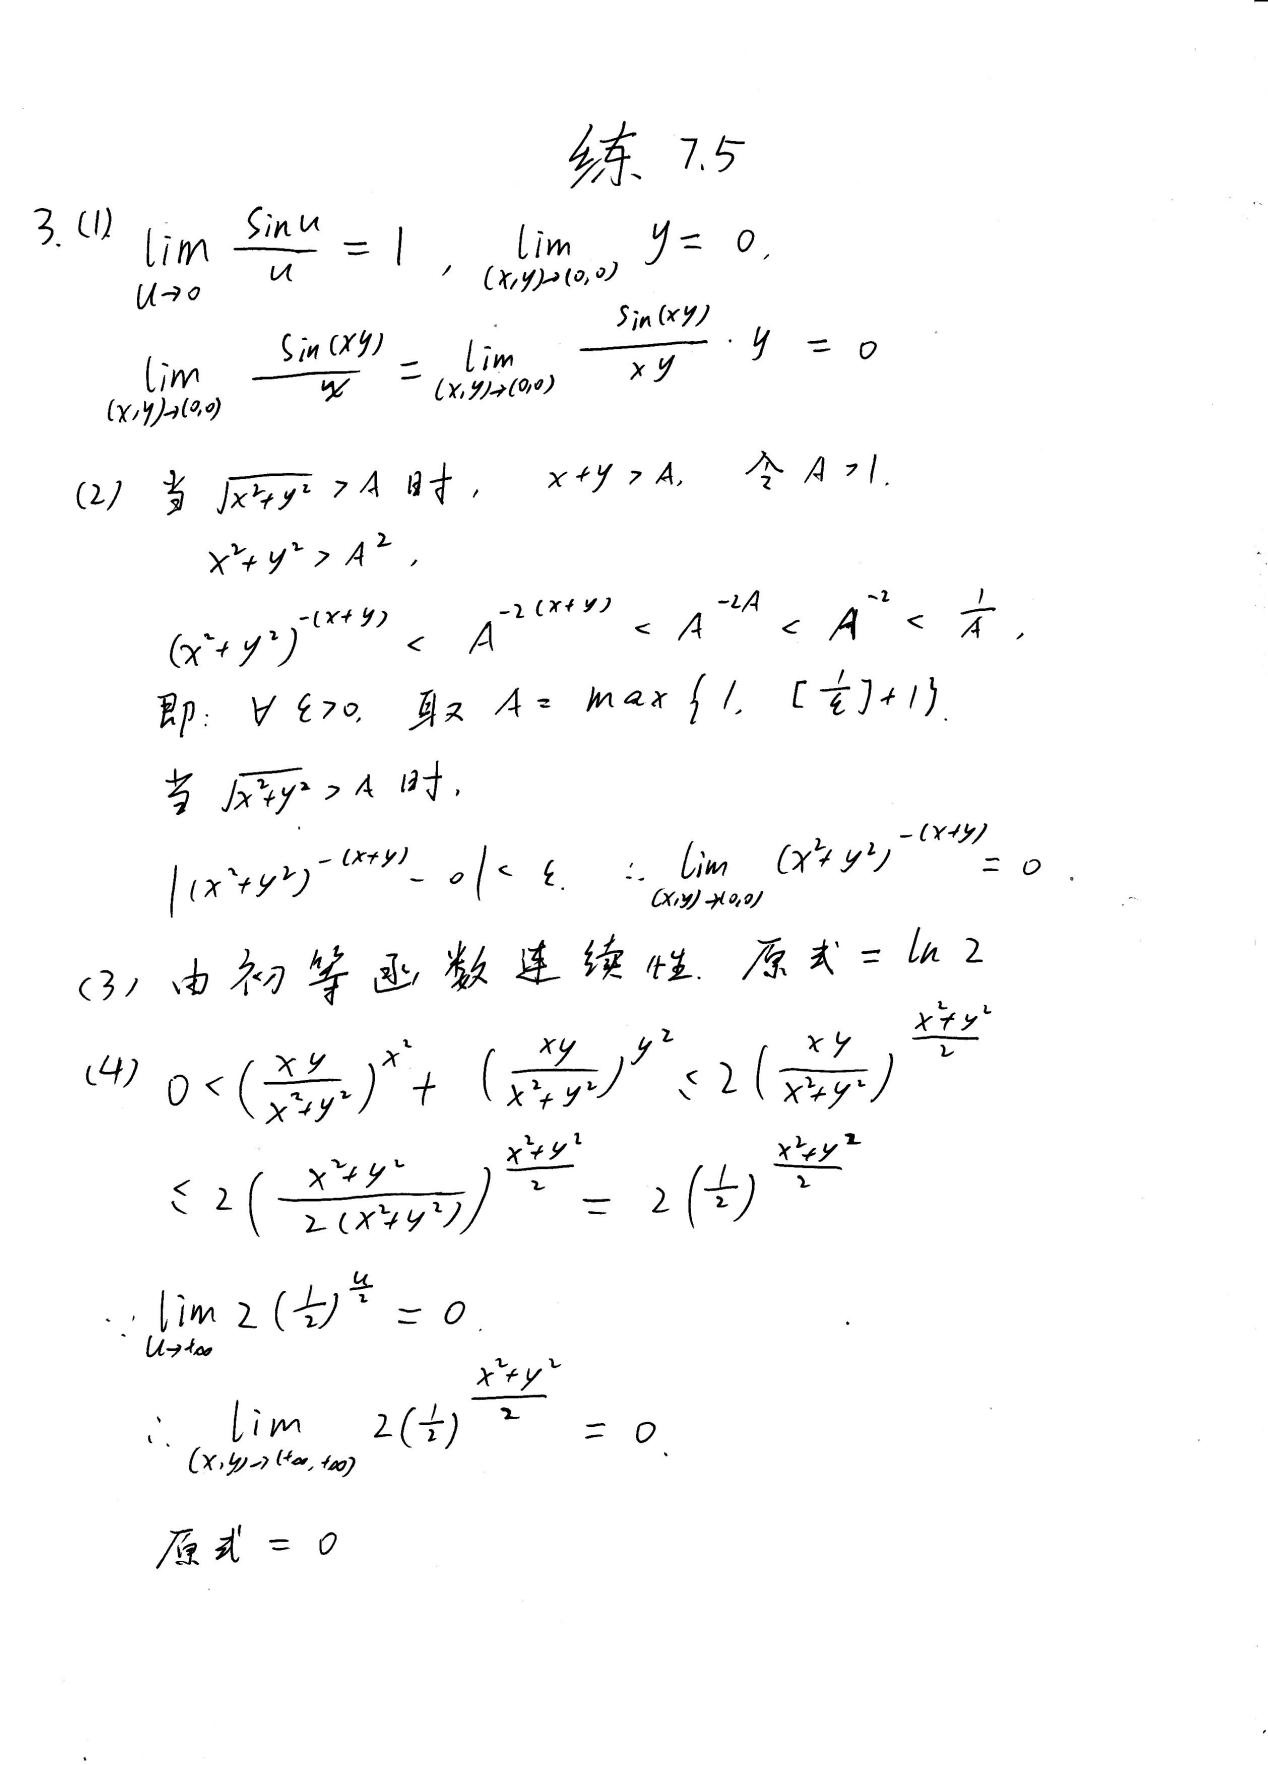 练 7.5
3. (1) lim_{u→0} sin u / u = 1 , lim_{(x,y)→(0,0)} y = 0,
lim_{(x,y)→(0,0)} sin(xy) / x = lim_{(x,y)→(0,0)} sin(xy) / xy · y = 0
(2) 当 √(x²+y²) > A 时, x+y > A, 令 A>1.
x²+y² > A²,
(x²+y²)^{-(x+y)} < A^{-2(x+y)} < A^{-2A} < A^{-2} < 1/A ,
即: ∀ ε>0, 取 A = max{1, [1/ε]+1}.
当 √(x²+y²) > A 时,
|(x²+y²)^{-(x+y)} - 0| < ε. ∴ lim_{(x,y)→(0,0)} (x²+y²)^{-(x+y)} = 0 .
(3) 由初等函数连续性. 原式 = ln 2
(4) 0 < (xy / (x²+y²))^{x²} + (xy / (x²+y²))^{y²} ≤ 2 (xy / (x²+y²))^{(x²+y²)/2}
≤ 2 ((x²+y²) / 2(x²+y²))^{(x²+y²)/2} = 2 (1/2)^{(x²+y²)/2}
∵ lim_{u→+∞} 2 (1/2)^{u/2} = 0.
∴ lim_{(x,y)→(+∞,+∞)} 2(1/2)^{(x²+y²)/2} = 0.
原式 = 0